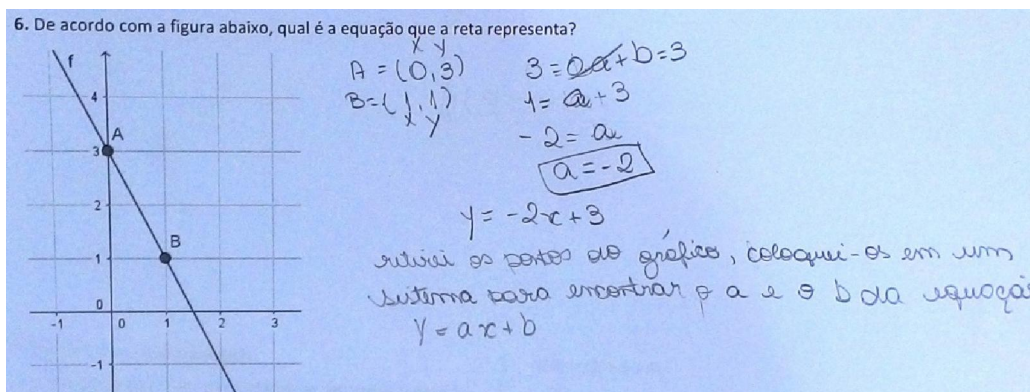 6. De acordo com a figura abaixo, qual é a equação que a reta representa?
f
4
A
3
2
B
1
0
-1 0 1 2 3
-1
x y
A = (0,3)
B = (1,1)
x y
3 = 0a + b = 3
1 = a + 3
- 2 = a
a = -2
y = -2x + 3
retirei os pontos do gráfico, coloquei-os em um
sistema para encontrar o a e o b da equaçã
y = ax + b